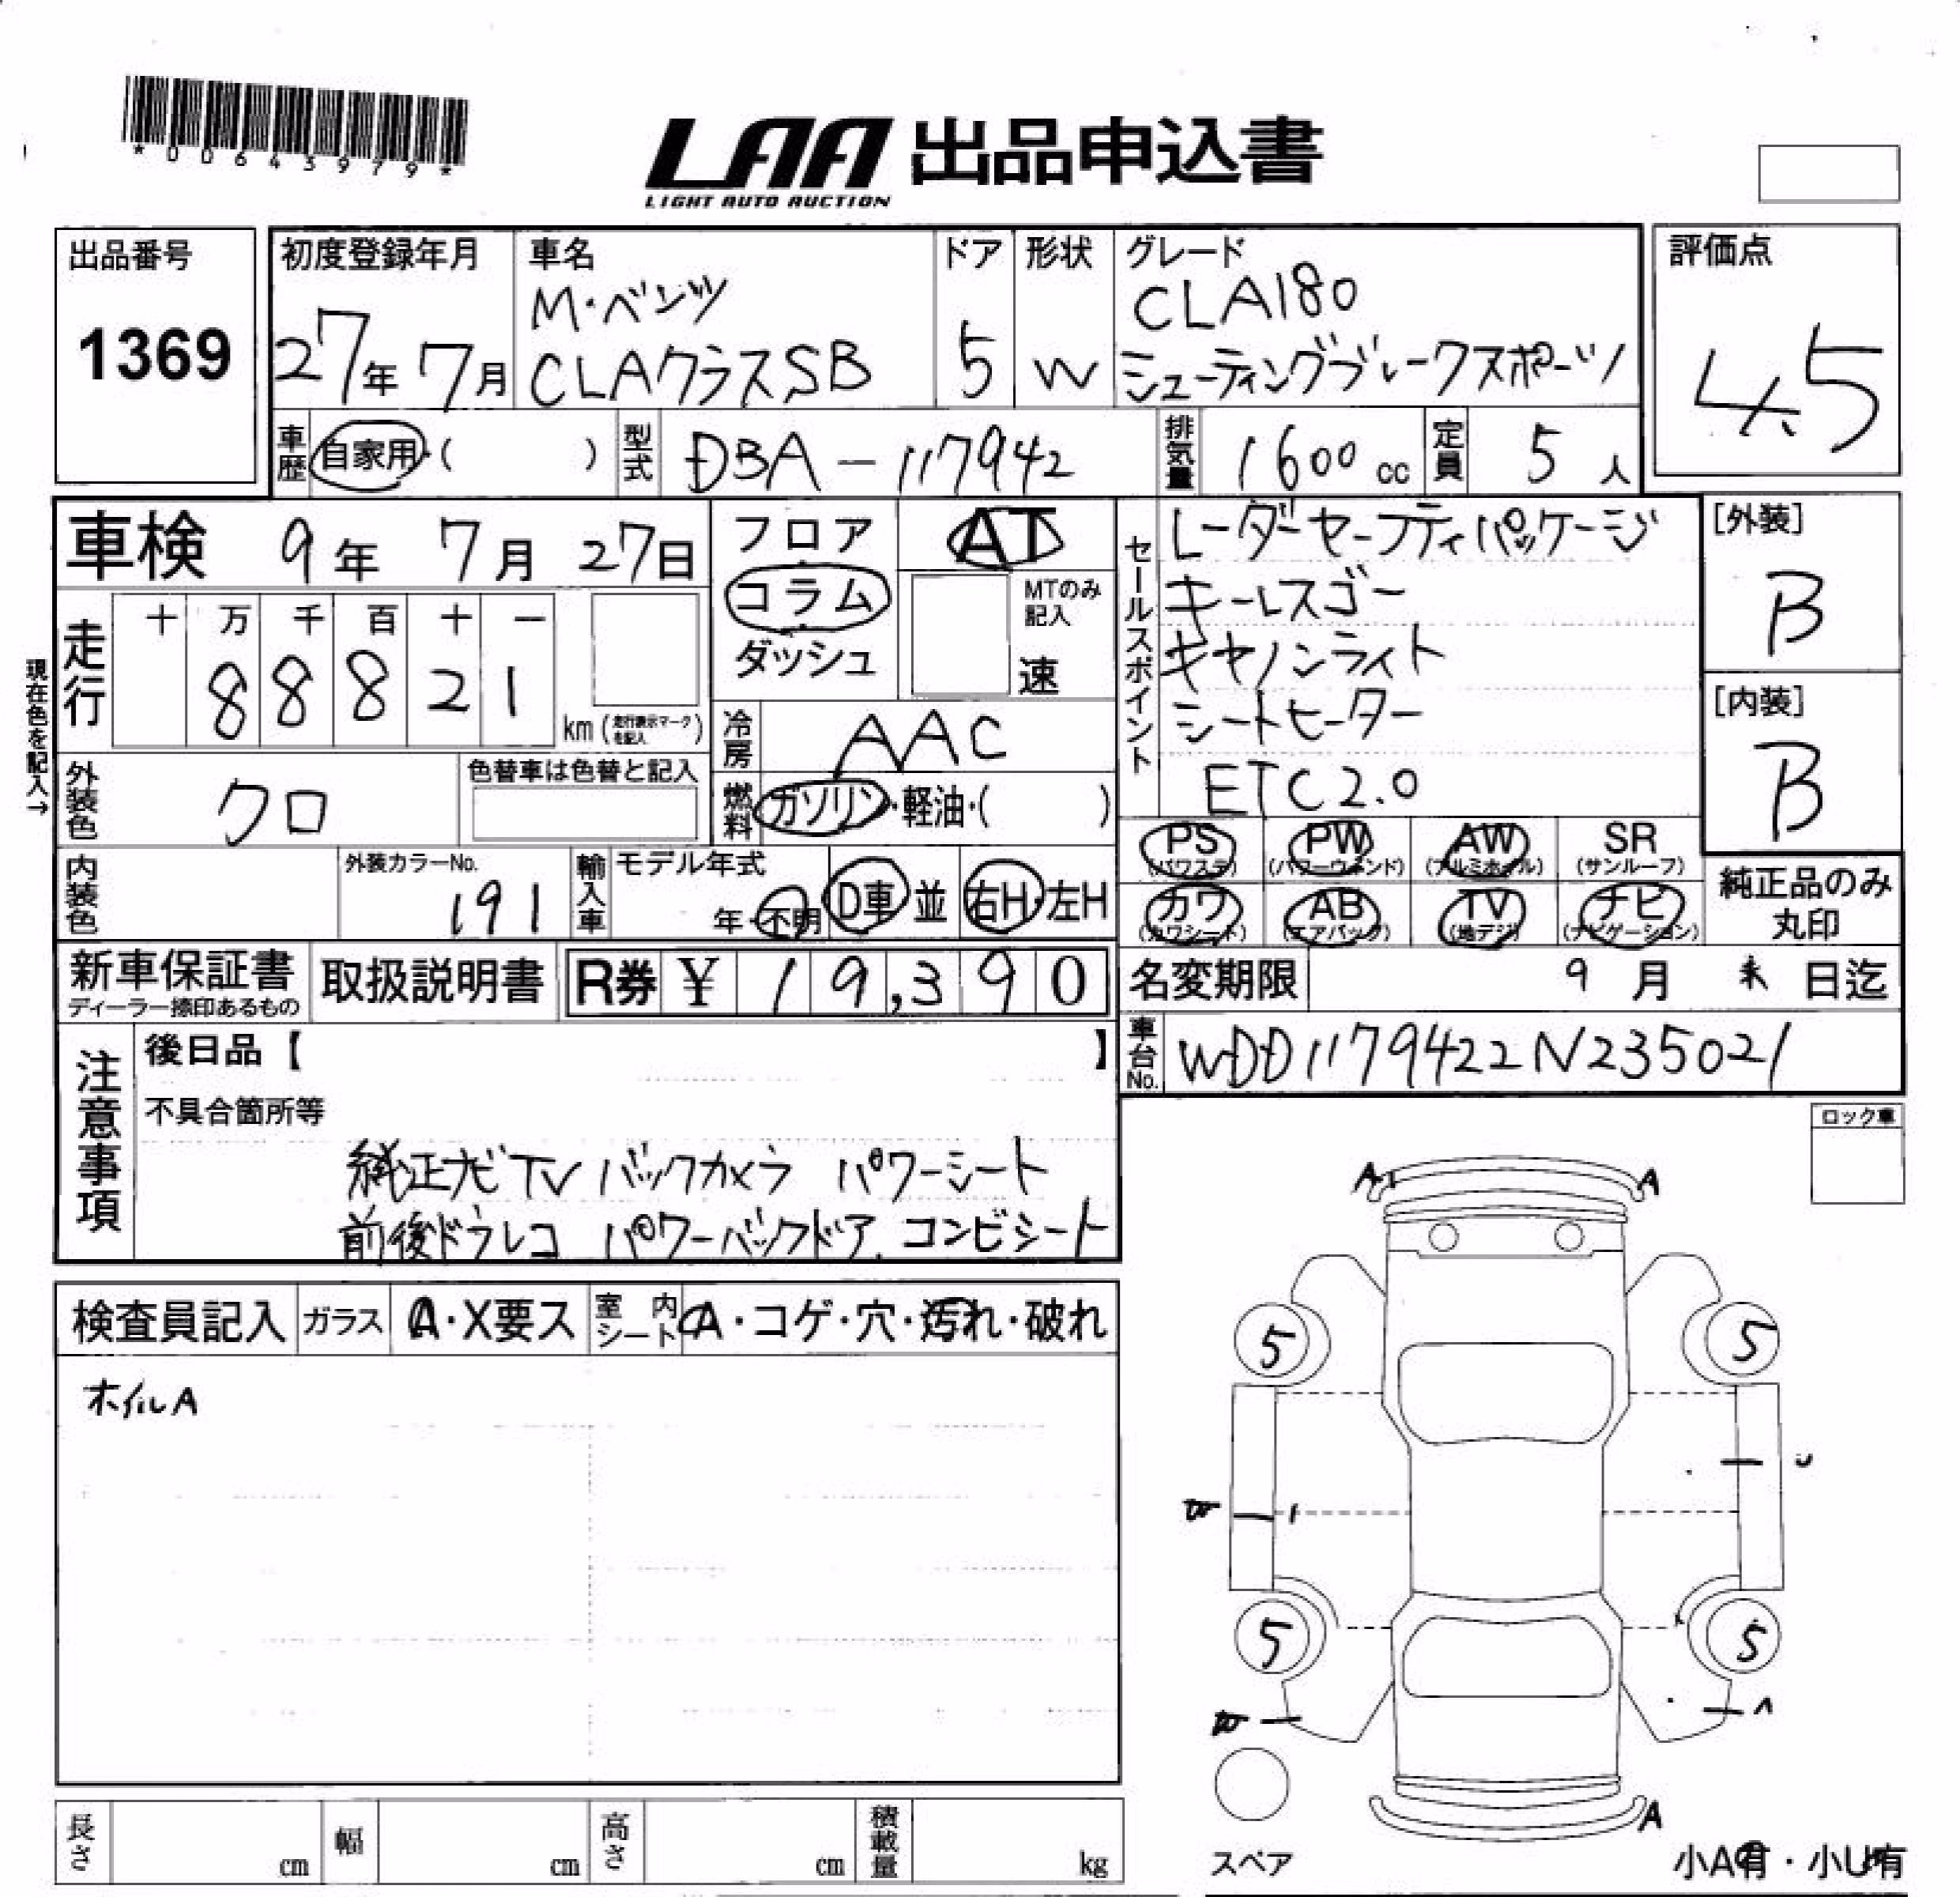 *00643979*
LAA 出品申込書
LIGHT AUTO AUCTION
出品番号
1369
初度登録年月
27年 7月
車名
M・ベンツ
CLAクラスSB
ドア
5
形状
W
グレード
CLA180
シューティングブレークスポーツ
評価点
4.5
車歴 自家用・( )
型式 DBA-117942
排気量 1600 cc
定員 5 人
車検 9年 7月 27日
走行 十 万 千 百 十 一
8 8 8 2 1
km (走行表示マークを記入)
現在色を記入→
外装色 クロ
色替車は色替と記入
内装色
外装カラーNo.
191
フロア
コラム
ダッシュ
AT
MTのみ記入
速
冷房 AAC
燃料 ガソリン・軽油・( )
輸入車 モデル年式
年・不明 D車 並 右H・左H
セールスポイント
レーダーセーフティパッケージ
キーレスゴー
キセノンライト
シートヒーター
ETC2.0
[外装]
B
[内装]
B
PS (パワステ) PW (パワーウィンド) AW (アルミホイル) SR (サンルーフ)
カワ (カワシート) AB (エアバック) TV (地デジ) ナビ (ナビゲーション)
純正品のみ
丸印
新車保証書
ディーラー捺印あるもの
取扱説明書
R券 ¥ 19,390
名変期限 9月 末 日迄
車台No. WDD1179422N235021
注意事項
後日品【 】
不具合箇所等
純正ナビTV バックカメラ パワーシート
前後ドラレコ パワーバックドア コンビシート
ロック車
検査員記入 ガラス A・X要ス 室内シート A・コゲ・穴・汚れ・破れ
ホイルA
A1
A
5
5
5
5
A
スペア
小A有・小U有
長さ cm 幅 cm 高さ cm 積載量 kg